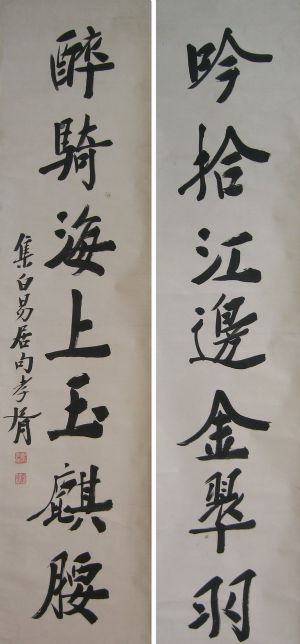 吟拾江邊金翠羽
醉騎海上玉麒腰
集白易居句孝胥